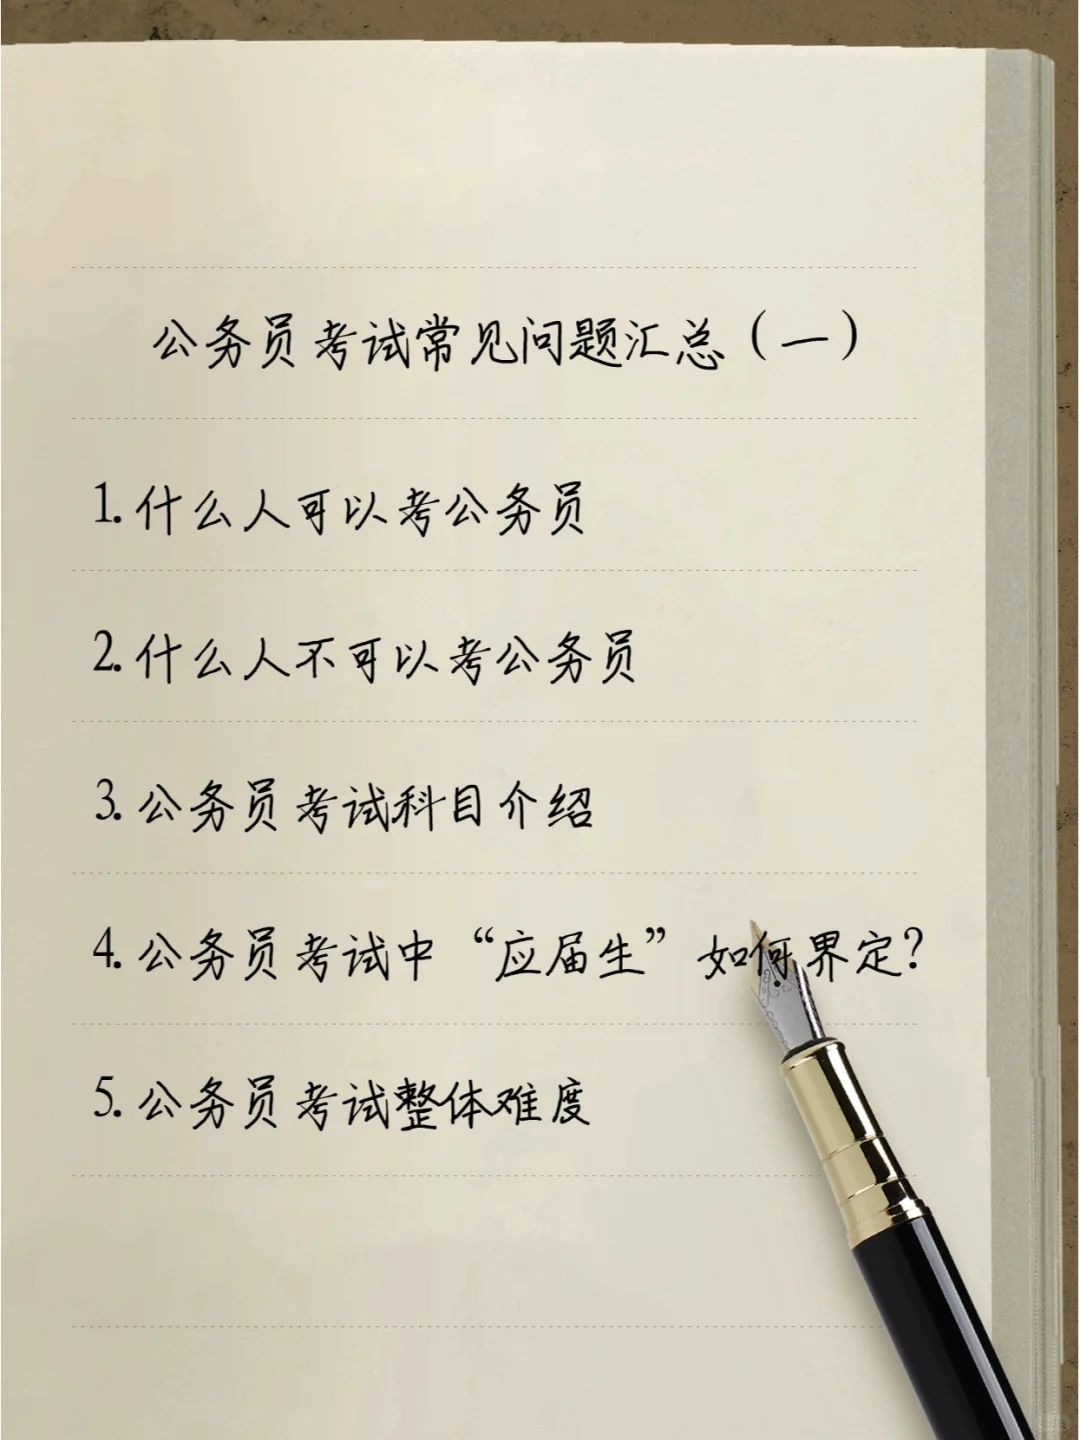 公务员考试常见问题汇总（一）
1.什么人可以考公务员
2.什么人不可以考公务员
3.公务员考试科目介绍
4.公务员考试中“应届生”如何界定？
5.公务员考试整体难度